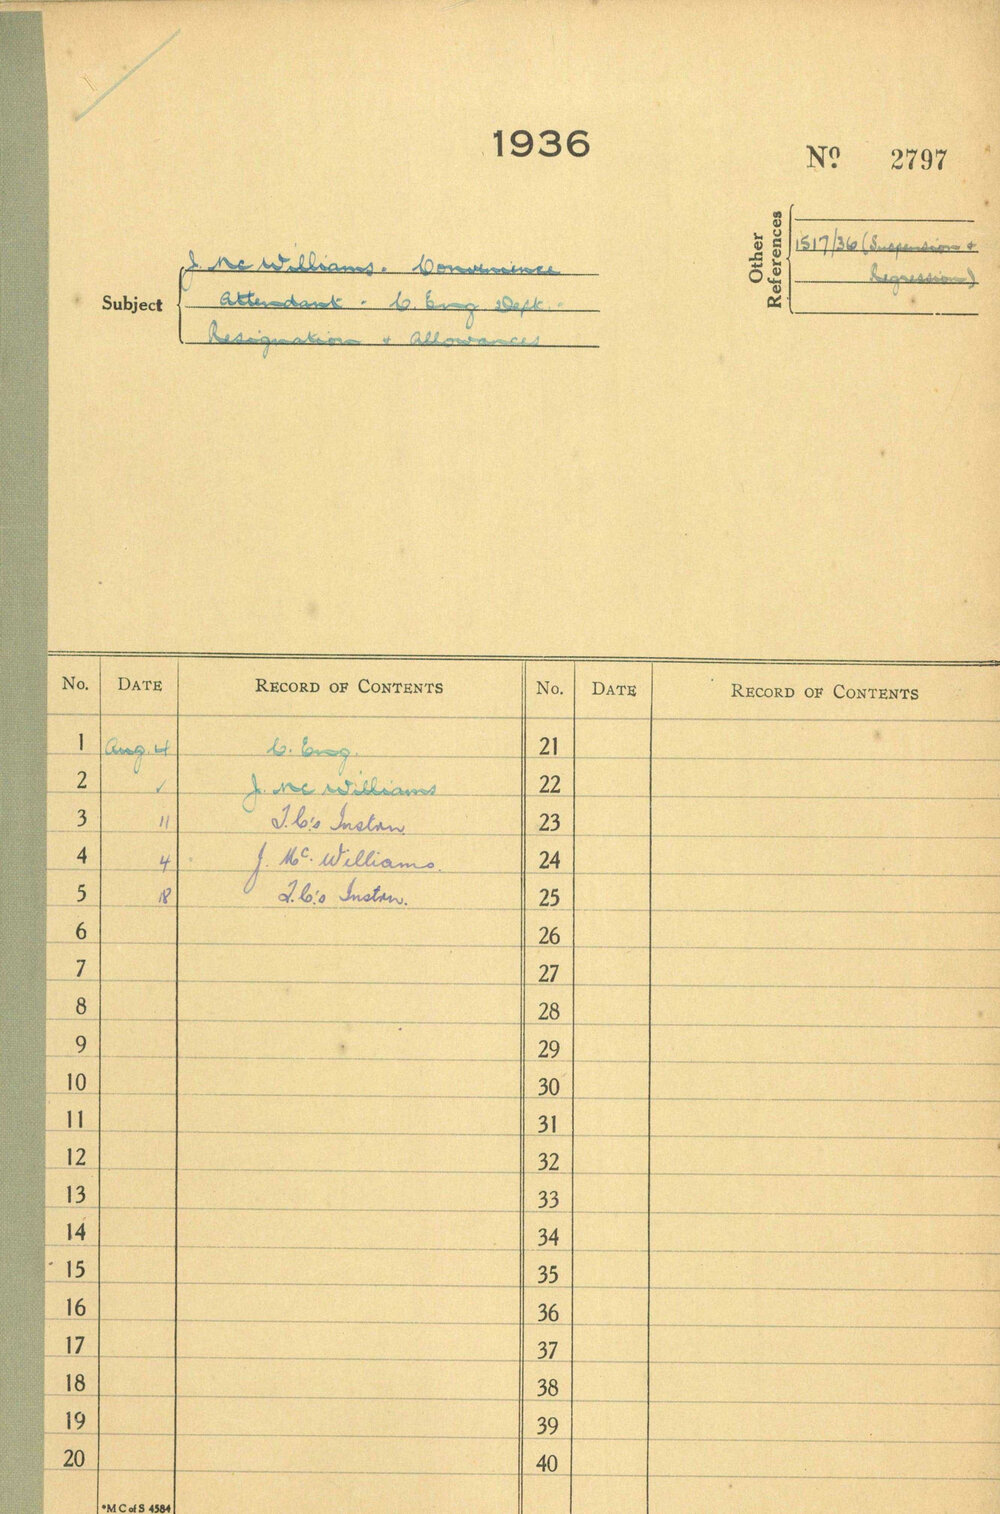 1936
Nº 2797
Other References
1517/36 (Suspension &
Regression)
Subject
J. Mc Williams. Convenience
Attendant - C. Eng. Dept. -
Resignation & Allowances
No. DATE RECORD OF CONTENTS No. DATE RECORD OF CONTENTS
1 Aug. 4 C. Eng. 21
2 ✓ J. Mc Williams 22
3 11 T.C's Instrn. 23
4 4 J. Mc. Williams. 24
5 18 T.C's Instrn. 25
6 26
7 27
8 28
9 29
10 30
11 31
12 32
13 33
14 34
15 35
16 36
17 37
18 38
19 39
20 40
*M C of S 4584